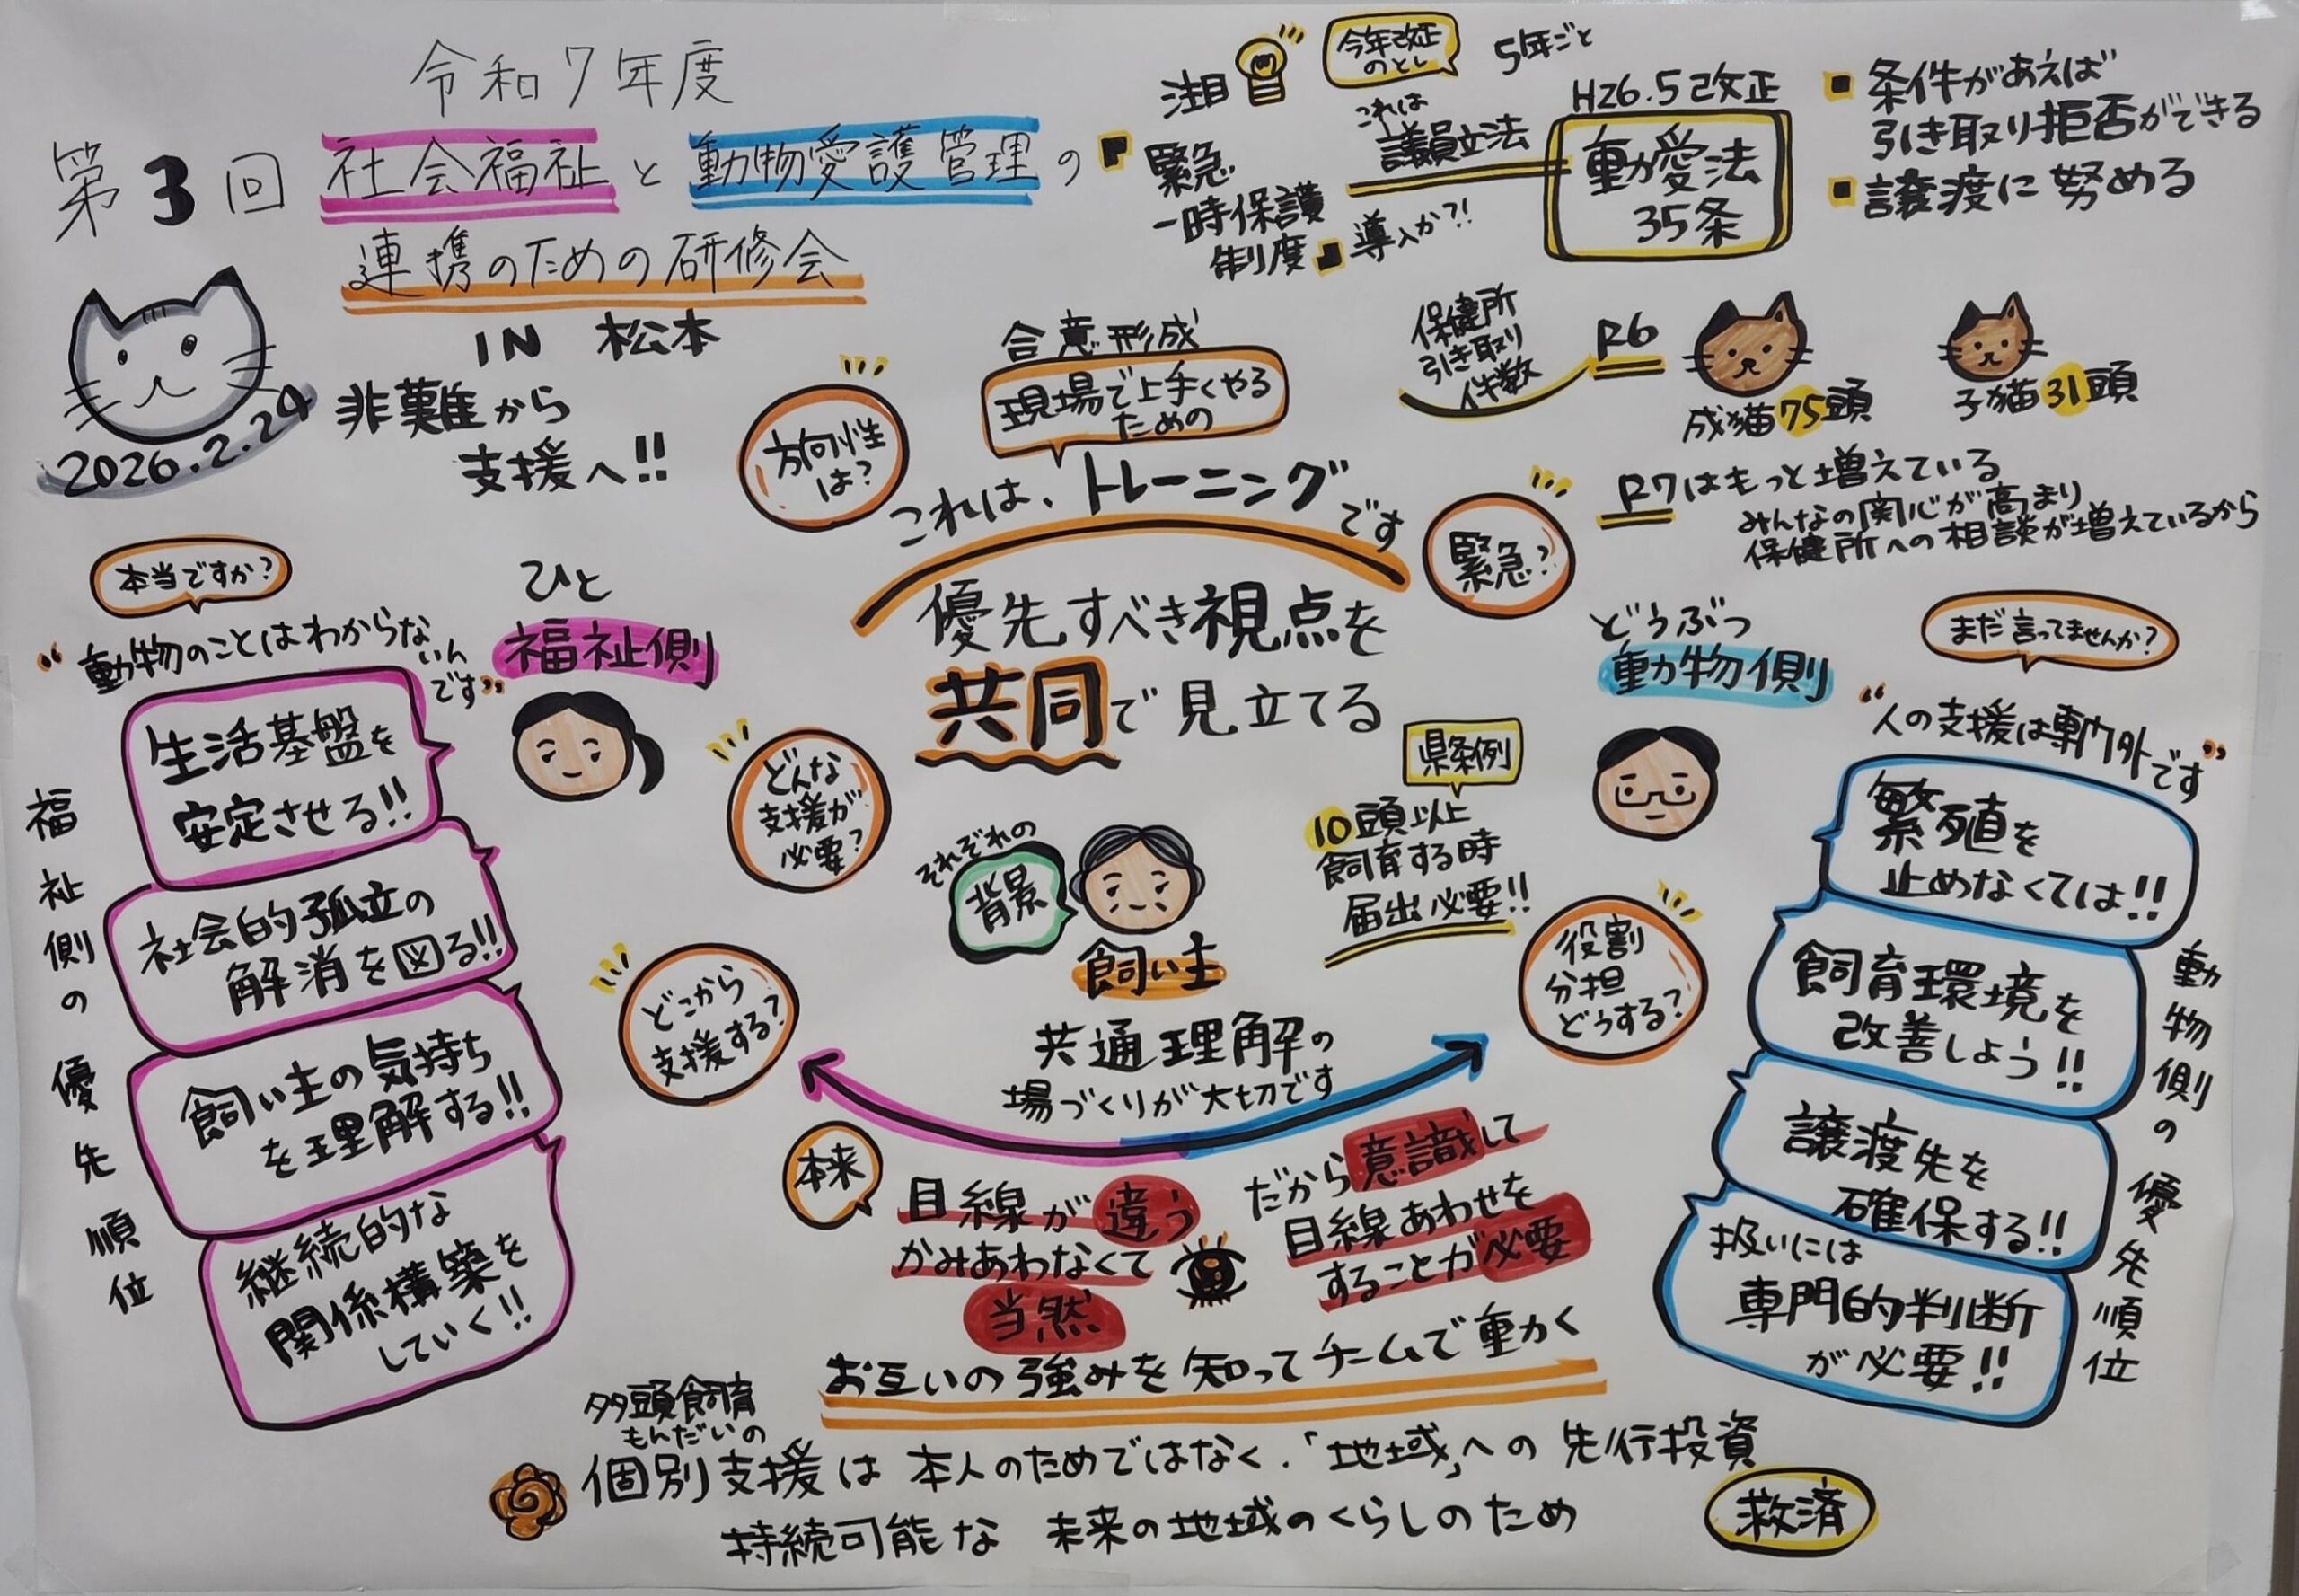 令和7年度
第3回 社会福祉と動物愛護管理の
連携のための研修会
IN 松本
2026.2.24
非難から
支援へ!!
注目
緊急
一時保護
制度
導入か?!
今年改正
のとし
5年ごと
これは
議員立法
H26.5改正
動愛法
35条
条件があえば
引き取り拒否ができる
譲渡に努める
保健所
引き取り
件数
R6
成猫75頭
子猫31頭
R7はもっと増えている
みんなの関心が高まり
保健所への相談が増えているから
合意形成
現場で上手くやる
ための
これは、トレーニングです
方向性
は?
緊急?
優先すべき視点を
共同で見立てる
本当ですか?
“動物のことはわからな
いん
です”
ひと
福祉側
福祉側の優先順位
生活基盤を
安定させる!!
社会的孤立の
解消を図る!!
飼い主の気持ち
を理解する!!
継続的な
関係構築を
していく!!
どんな
支援が
必要?
どこから
支援する?
それぞれの
背景
飼い主
県条例
10頭以上
飼育する時
届出必要!!
役割
分担
どうする?
どうぶつ
動物側
まだ言ってませんか?
“人の支援は専門外です”
繁殖を
止めなくては!!
飼育環境を
改善しよう!!
譲渡先を
確保する!!
扱いには
専門的判断
が必要!!
動物側の優先順位
共通理解の
場づくりが大切です
本来
目線が違う
かみあわなくて
当然
だから意識して
目線あわせを
することが必要
お互いの強みを知ってチームで動く
多頭飼育
もんだいの
個別支援は本人のためではなく、「地域」への先行投資
持続可能な未来の地域のくらしのため
救済